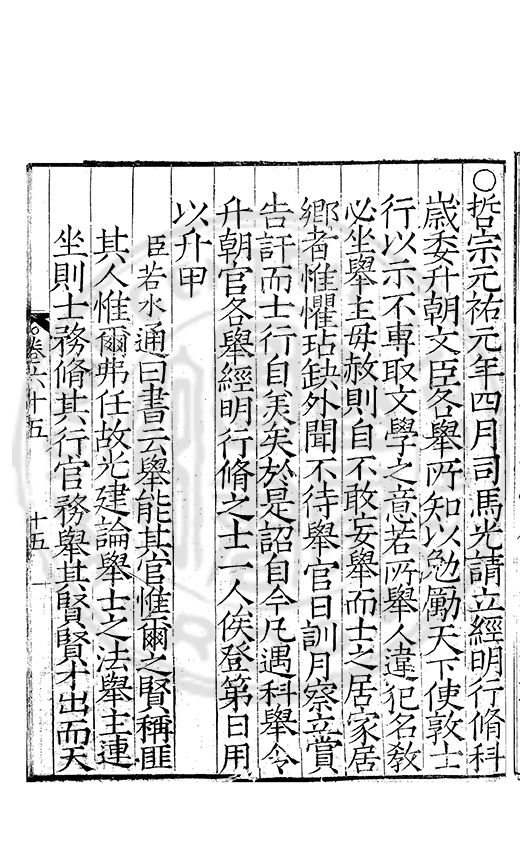 ○哲宗元祐元年四月司馬光請立經明行脩科
歲委升朝文臣各舉所知以勉勵天下使敦士
行以示不專取文學之意若所舉人違犯名教
必坐舉主毋赦則自不敢妄舉而士之居家居
鄉者惟懼玷缺外聞不待舉官日訓月察立賞
告訐而士行自羙矣於是詔自今凢遇科舉令
升朝官各舉經明行脩之士一人俟登第日用
以升甲
臣若水通曰書云舉能其官惟爾之賢稱匪
其人惟爾弗任故光建論舉士之法舉主連
坐則士務脩其行官務舉其賢賢才出而天
卷六十五
十五